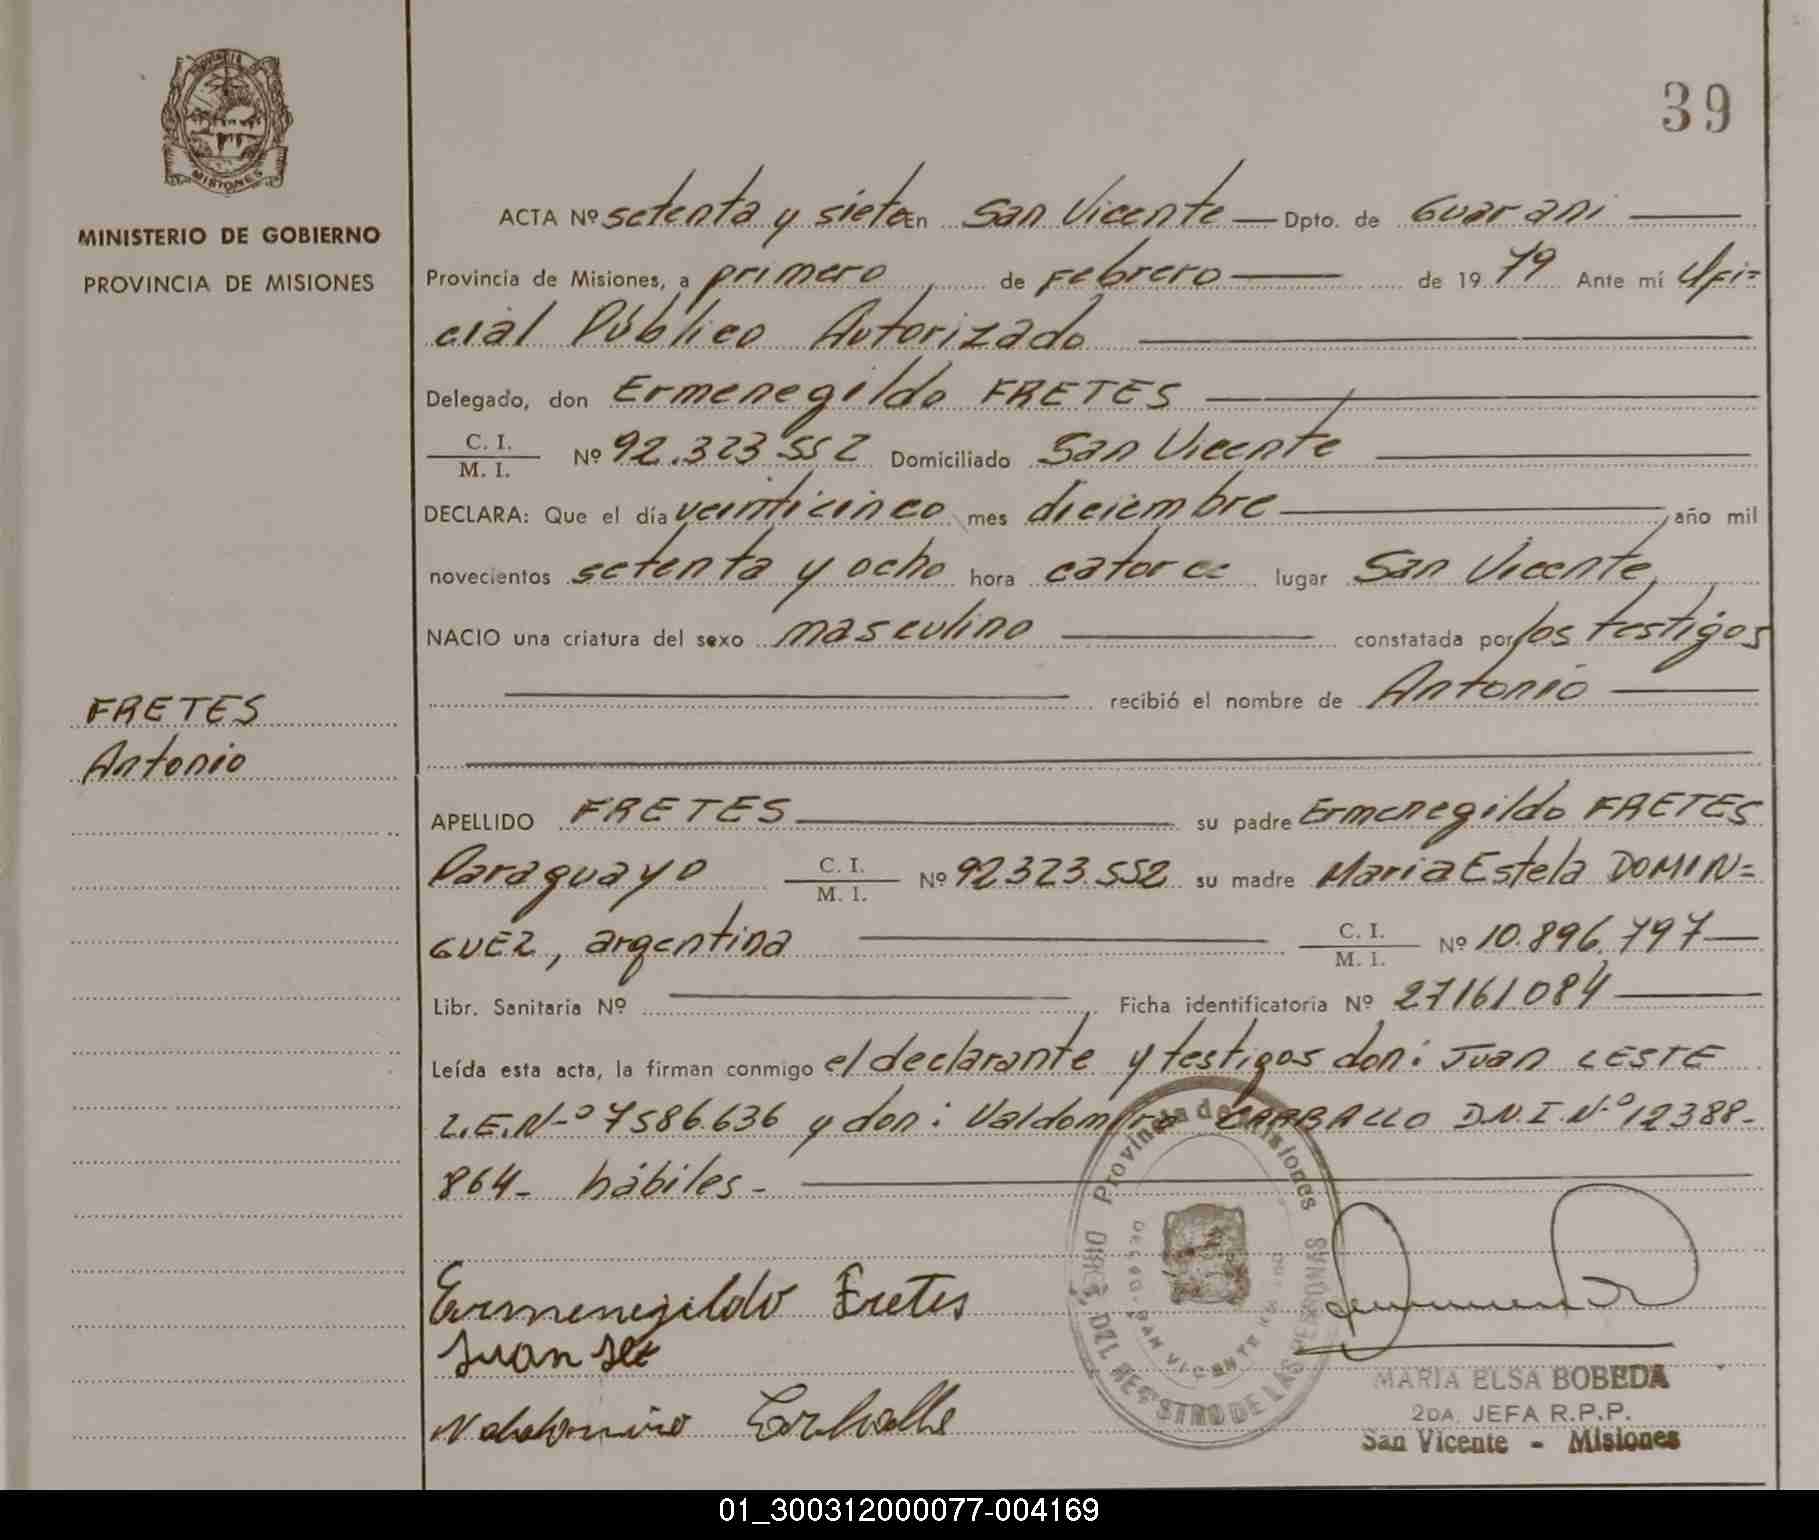 39
PROVINCIA DE
MISIONES
MINISTERIO DE GOBIERNO
PROVINCIA DE MISIONES
ACTA Nº setenta y siete En San Vicente — Dpto. de Guarani —
Provincia de Misiones, a primero de Febrero — de 19 79 Ante mí Ofi=
cial Público Autorizado —
Delegado, don Ermenegildo FRETES —
C. I.
M. I. Nº 92.323.552 Domiciliado San Vicente —
DECLARA: Que el día veinticinco mes diciembre — año mil
novecientos setenta y ocho hora catorce lugar San Vicente,
NACIO una criatura del sexo masculino — constatada por los testigos
— recibió el nombre de Antonio —
FRETES
Antonio
APELLIDO FRETES — su padre Ermenegildo FRETES
Paraguayo C. I.
M. I. Nº 92323.552 su madre Maria Estela DOMIN=
GUEZ, argentina — C. I.
M. I. Nº 10.896.797 —
Libr. Sanitaria Nº — Ficha identificatoria Nº 27161084 —
Leída esta acta, la firman conmigo el declarante y testigos don: Juan LESTE
L.E.N-º 7586.636 y don: Valdomiro CARBALLO D.N.I.N-º 12388-
864- hábiles- —
Ermenegildo Fretes
Juan
Valdomiro Carballo
Provincia de Misiones
SAN VICENTE
MARIA ELSA BOBEDA
2DA. JEFA R.P.P.
San Vicente - Misiones
01_300312000077-004169